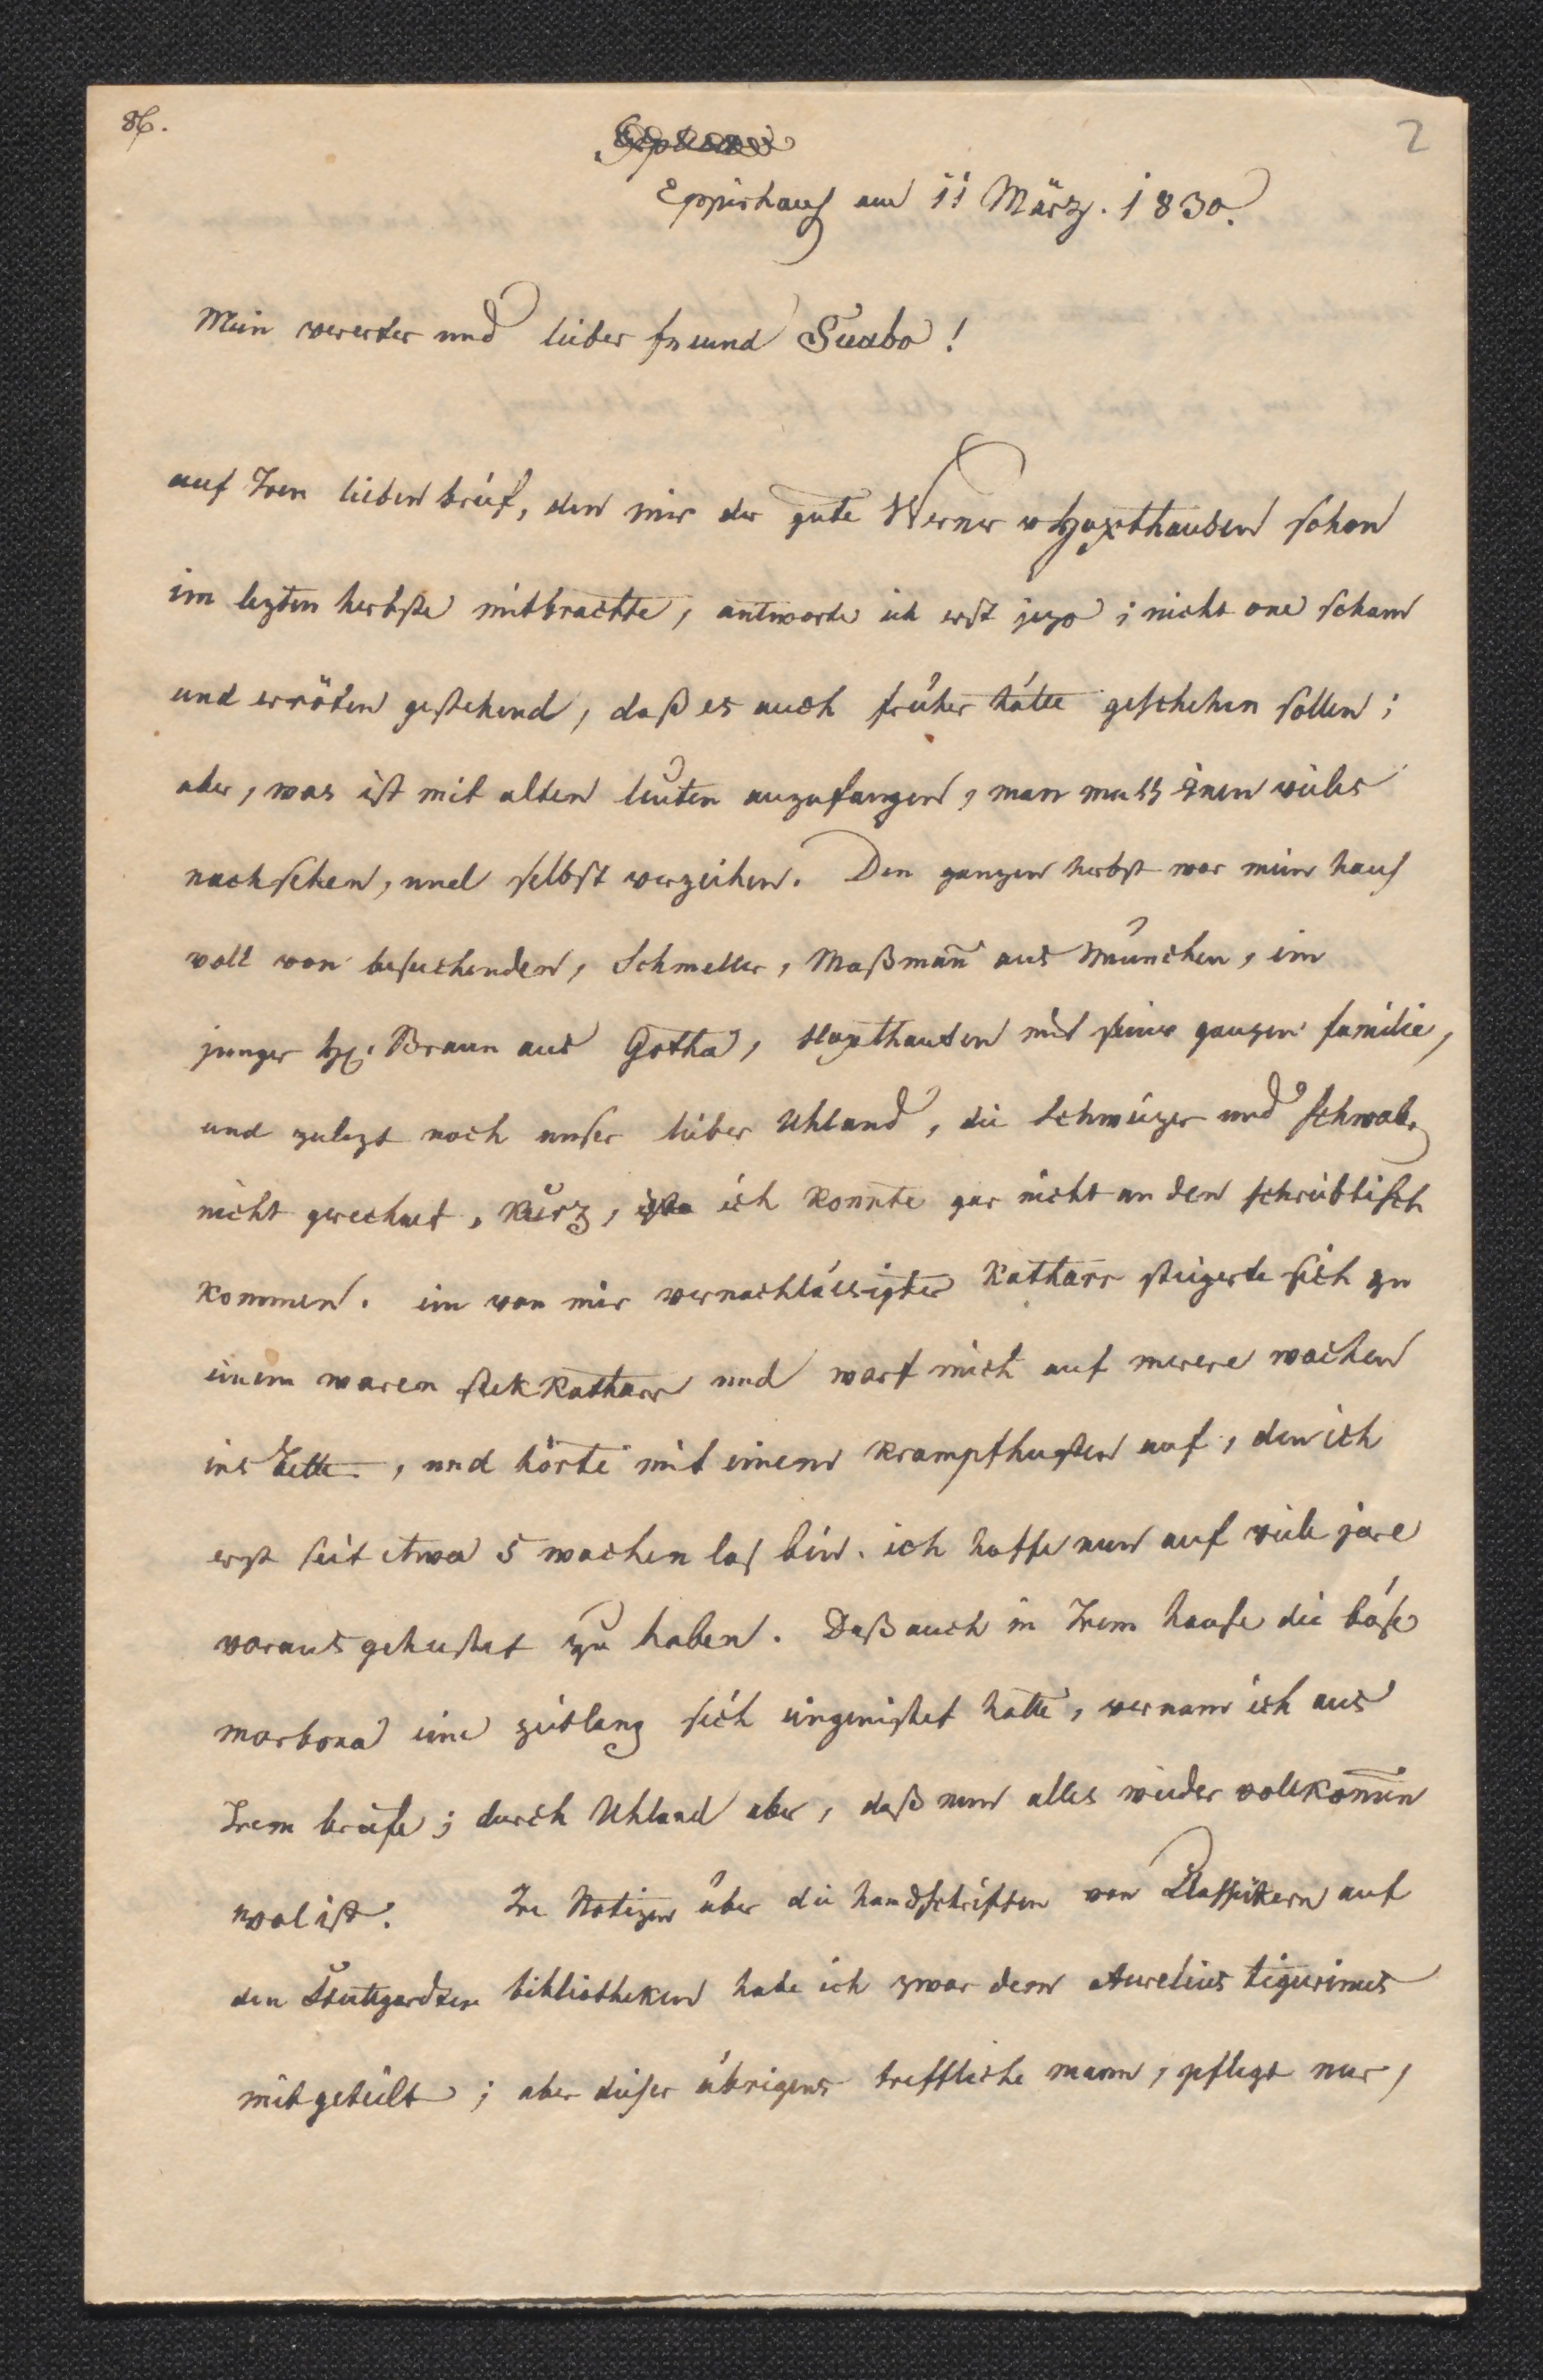 86.
2
Eppishaus am 11 März. 1830.
Mein vererter und lieber freund Suabo!
auf Iren lieben brief, den mir der gute Werner v Haxthausen schon
im lezten herbste mitbrachte, antworte ich erst jezo; nicht one scham
und erröten gestehend, daß es auch früher hätte geschehen sollen;
aber, was ist mit alten leuten anzufangen, man muss inen vieles
nachsehen, und selbst verzeihen. Den ganzen herbst war mein haus
voll von besuchenden, Schmeller, Maßman̄ aus München, ein
junger Hr. Braun aus Gotha, Haxthausen mit seiner ganzen familie,
und zulezt noch unser lieber Uhland, die Schweizer und Schwab
nicht gerechnet, kurz, ich konnte gar nicht an den schreibtisch
kommen. ein von mir vernachlässigter Katharr steigerte sich zu
einem waren stekkatharr und warf mich auf merere wochen
ins bette, und hörte mit einem krampfhusten auf, den ich
erst seit etwa 5 wochen los bin. ich hoffe nun auf viele jare
voraus gehustet zu haben. Daß auch in Irem hause die böse
morbona eine zeitlang sich eingenistet hatte, vernam ich aus
Irem briefe; durch Uhland aber, daß nun alles wieder vollkom̄en
wol ist. Ire Notizen über die handschriften von Classikern auf
den Stuttgardter bibliotheken habe ich zwar dem Aurelius tigurinus
mitgeteilt; aber dieser übrigens treffliche mann, pflegt nur,